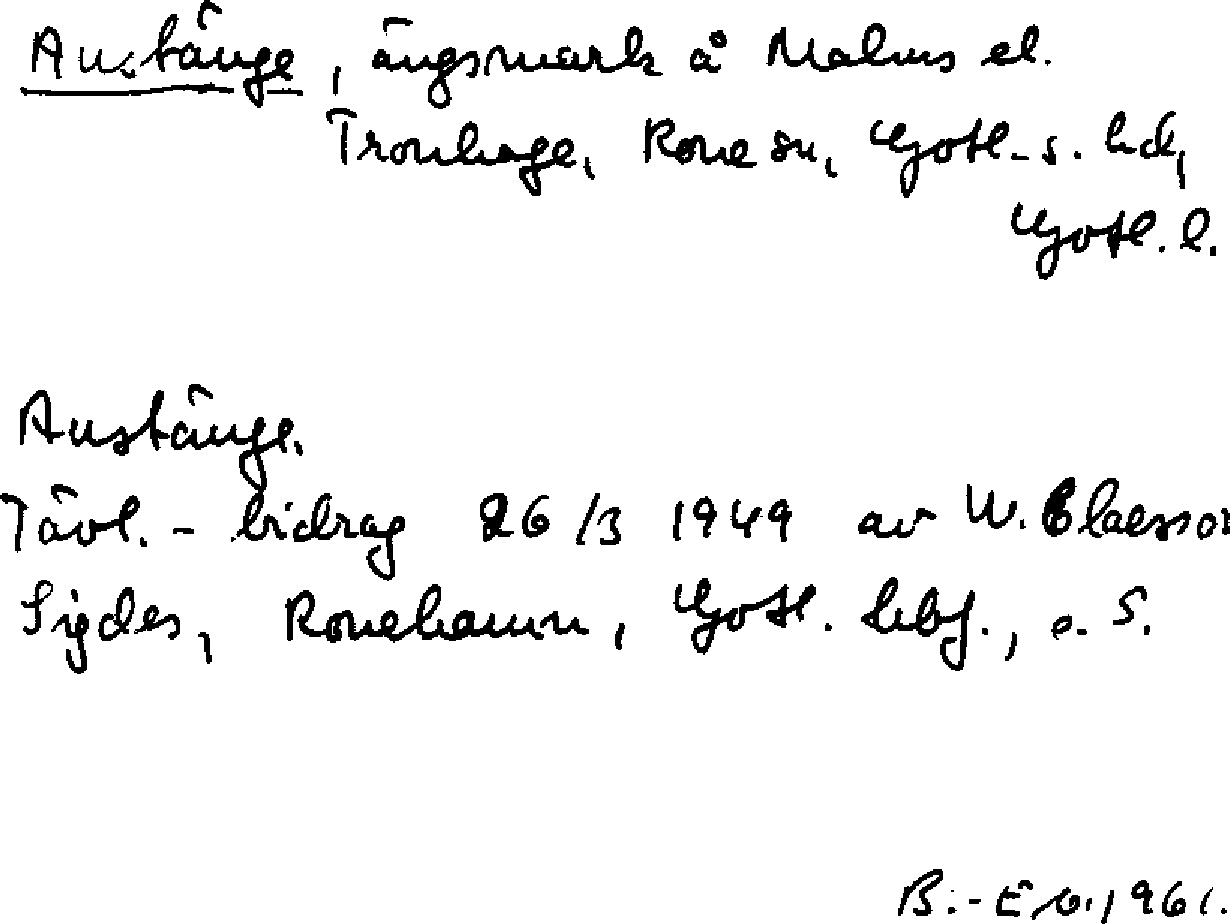 Austänge, ängsmark å Malms el.
Tronhage, Rone sn, Gotl. s. hd,
Gotl. l.
Austänge.
Tävl.-bidrag 26/3 1949 av W. Claesson
Sigdes, Ronehamn, Gotl. hbf., s. 5.
B.-E 1961.